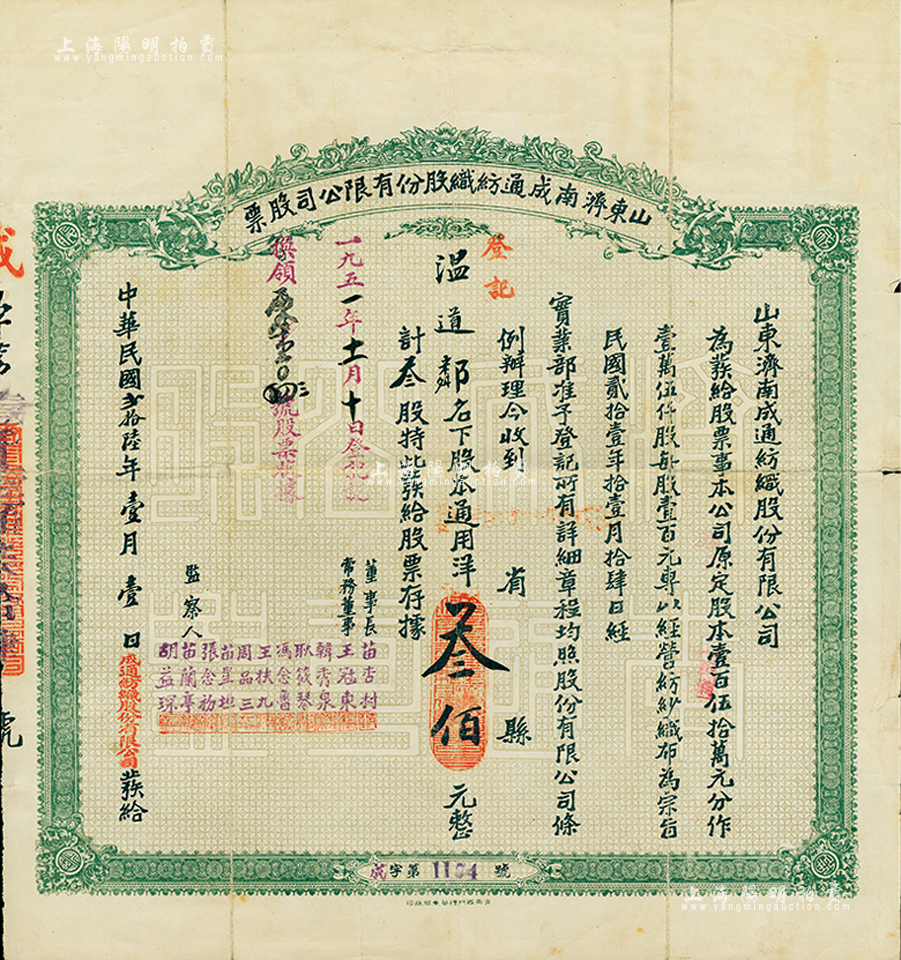 上海陽明拍賣
www.yangmingauction.com
山東濟南成通紡織股份有限公司股票
山東濟南成通紡織股份有限公司
為蔴給股票事本公司原定股本壹百伍拾萬元分作
壹萬伍仟股每股壹百元專以經營紡紗織布為宗旨
民國貳拾壹年拾壹月拾肆日經
實業部准予登記所有詳細章程均照股份有限公司條
例辦理今收到 省 縣
登記
溫道 名下股本通用洋叁佰元整
計叁股持此蔴給股票存據
一九五一年十一月十日登記訖
換領 號股票
董事長 苗杏村
常務董事 王冠東
韓秀泉
耿筱琴
馮念魯
王扶九
周品三
苗星垣
監察人 張念劬
苗蘭亭
胡益琛
中華民國貳拾陸年壹月壹日
成通紡織股份有限公司
蔴給
成字第1104號
上海陽明拍賣
www.yangmingauction.com
上海陽明拍賣
www.yangmingauction.com